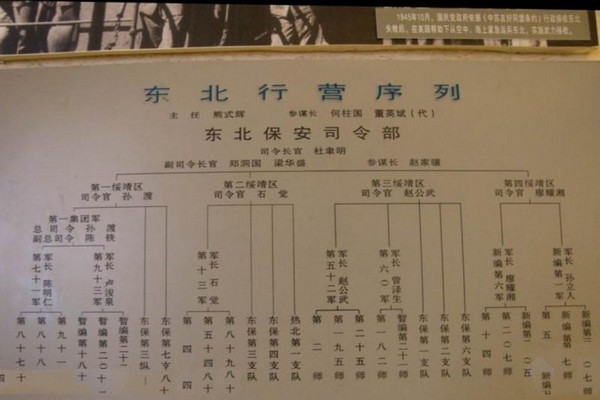 1945年10月，国民党政府依据《中苏友好同盟条约》行政接收东北
失败后，在美国帮助下从空中、海上紧急运兵东北，实施武力接收。
东北行营序列
主 任 熊式辉 参谋长 何柱国 董英斌（代）
东北保安司令部
司令长官 杜聿明
副司令长官 郑洞国 梁华盛 参谋长 赵家骧
第一绥靖区
司令官 孙 渡
第二绥靖区
司令官 石 觉
第三绥靖区
司令官 赵公武
第四绥靖区
司令官 廖耀湘
第一集团军
总司令 孙 渡
副总司令 陈 铁
第七十一军
军长 陈明仁
第九十三军
军长 卢浚泉
第十三军
军长 石 觉
第五十二军
军长 赵公武
第六〇军
军长 曾泽生
新编第六军
军长 廖耀湘
新编第一军
军长 孙立人
第八十七
第八十八
第九十一
暂编第十八
暂编第二〇十
暂编第二十二
东保第三纵
东保第七支八十
第四
第五十四
第八十九
东保第三支队
东保第四支队
热北第一支队
第二师
第一九五师
第二十五师
第一八二师
暂编第二十一师
东保第一支队
东保第二支队
东保第六支队
第十四师
第二〇七师
新编第二
第五
新编第七师
〇七师